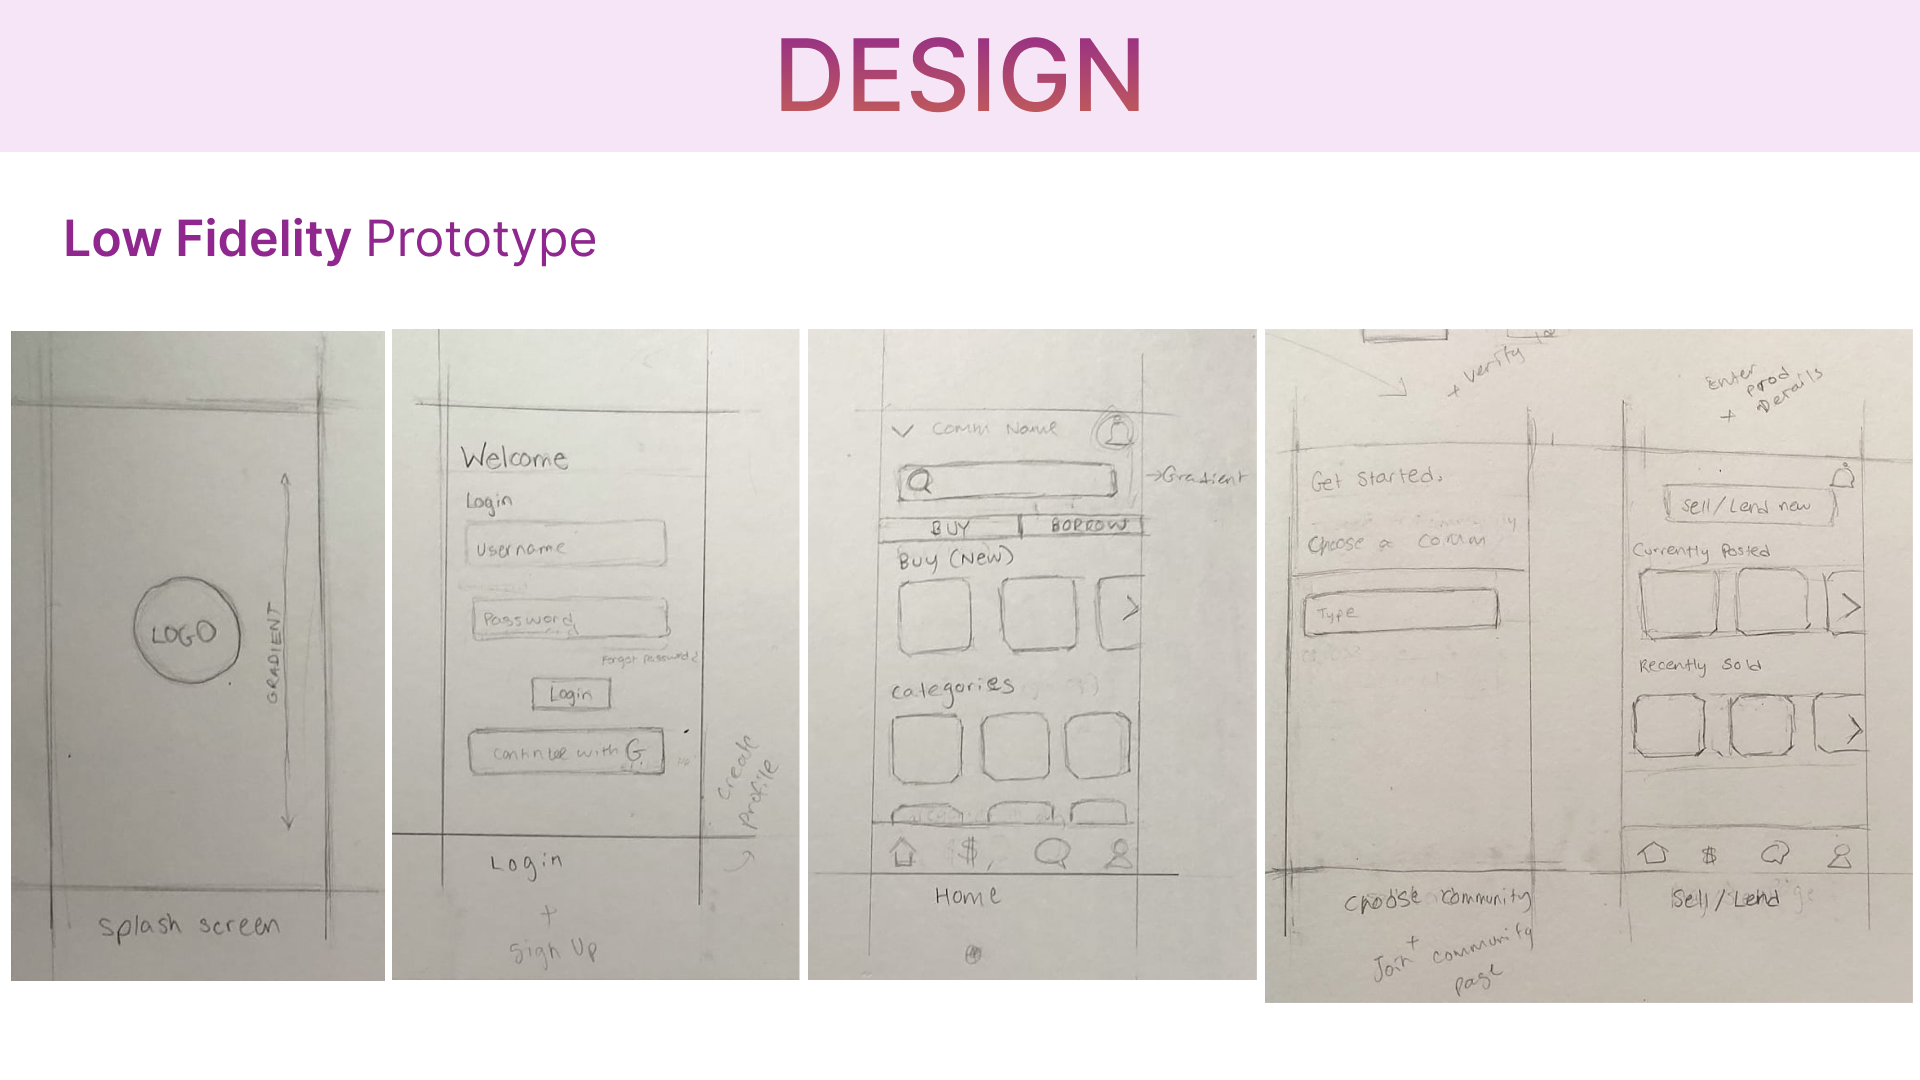 DESIGN
Low Fidelity Prototype
LOGO
GRADIENT
splash screen
Welcome
Login
Username
Password
Forgot Password?
Login
Continue with G
Create
Profile
Login
+
Sign Up
Comm Name
→Gradient
BUY
BORROW
Buy (New)
Categories
$
Home
+ Verify
Get Started.
Choose a comm
Type
Choose Community
+
Join community
page
Enter
prod
+ Details
Sell/Lend new
Currently Posted
Recently Sold
$
Sell/Lend